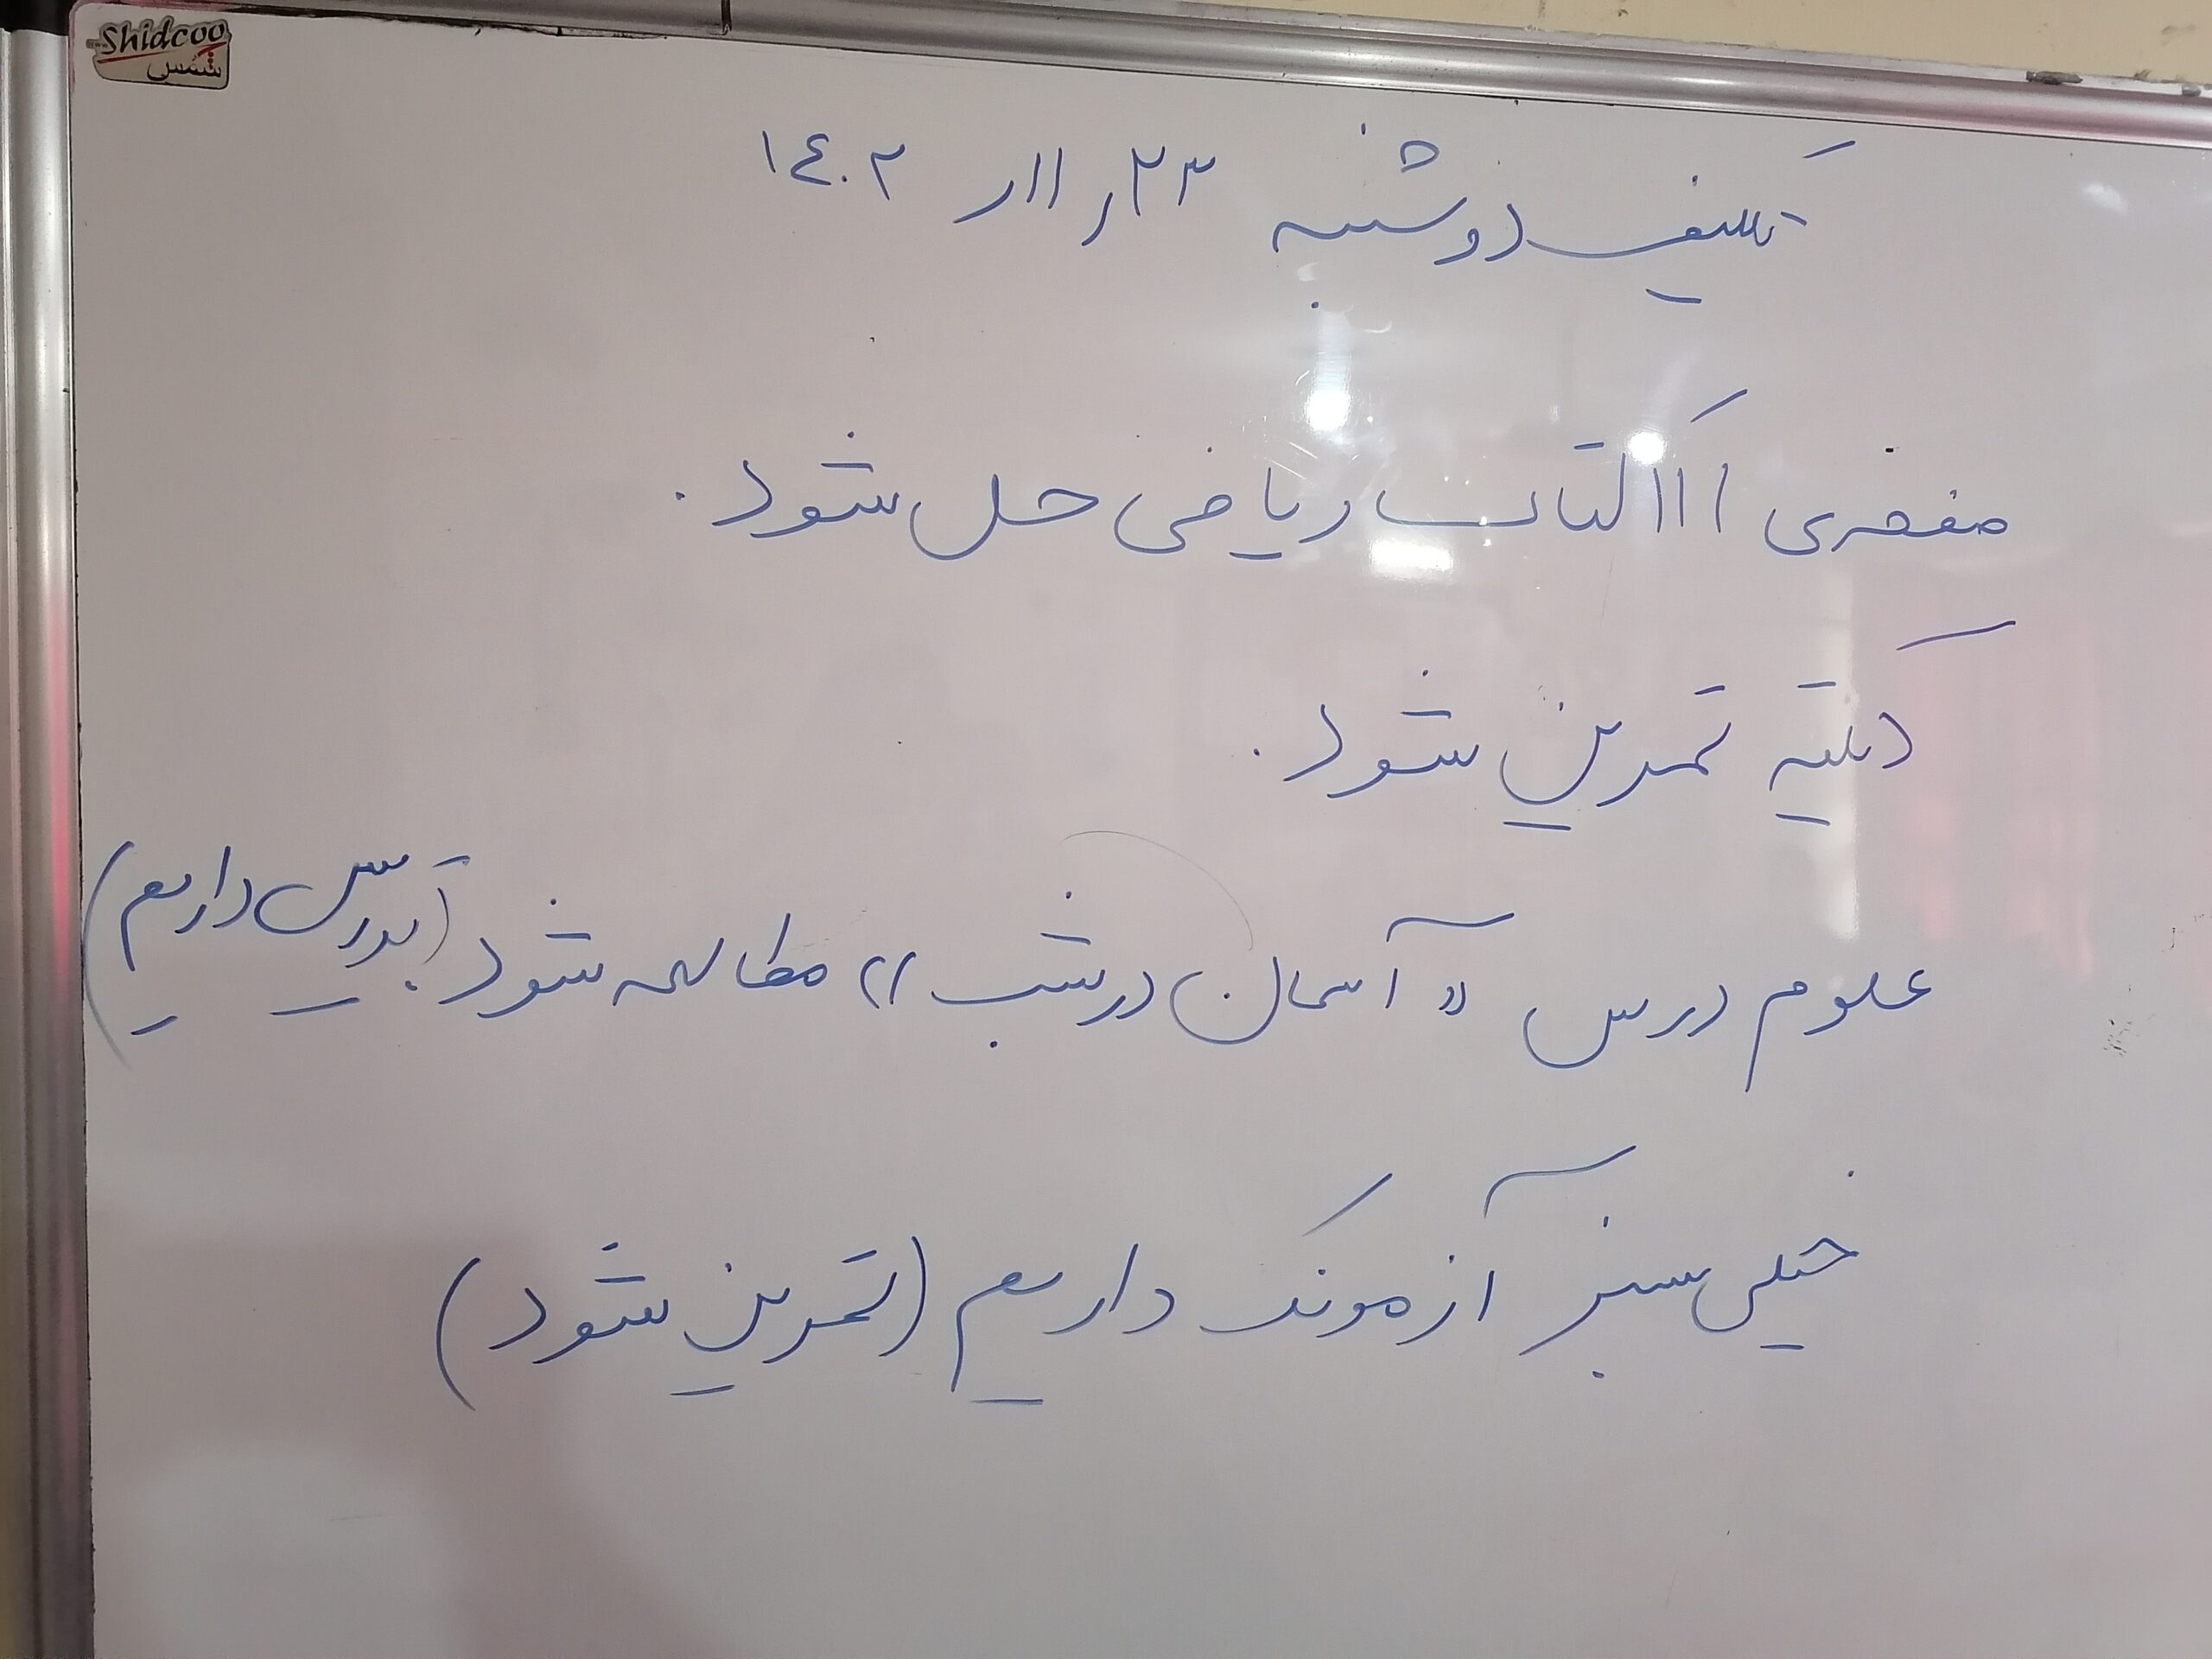 Shidcoo
شمس
تکلیف دوشنبه ۲۳ / ۱۱ / ۱٤۰۲
صفحه‌ی ۱۱۱ کتاب ریاضی حل شود.
دیکته تمرین شود.
علوم درس «آسمان در شب» مطالعه شود (بپرسش داریم)
خیلی سبز آزمونک داریم (تمرین شود)